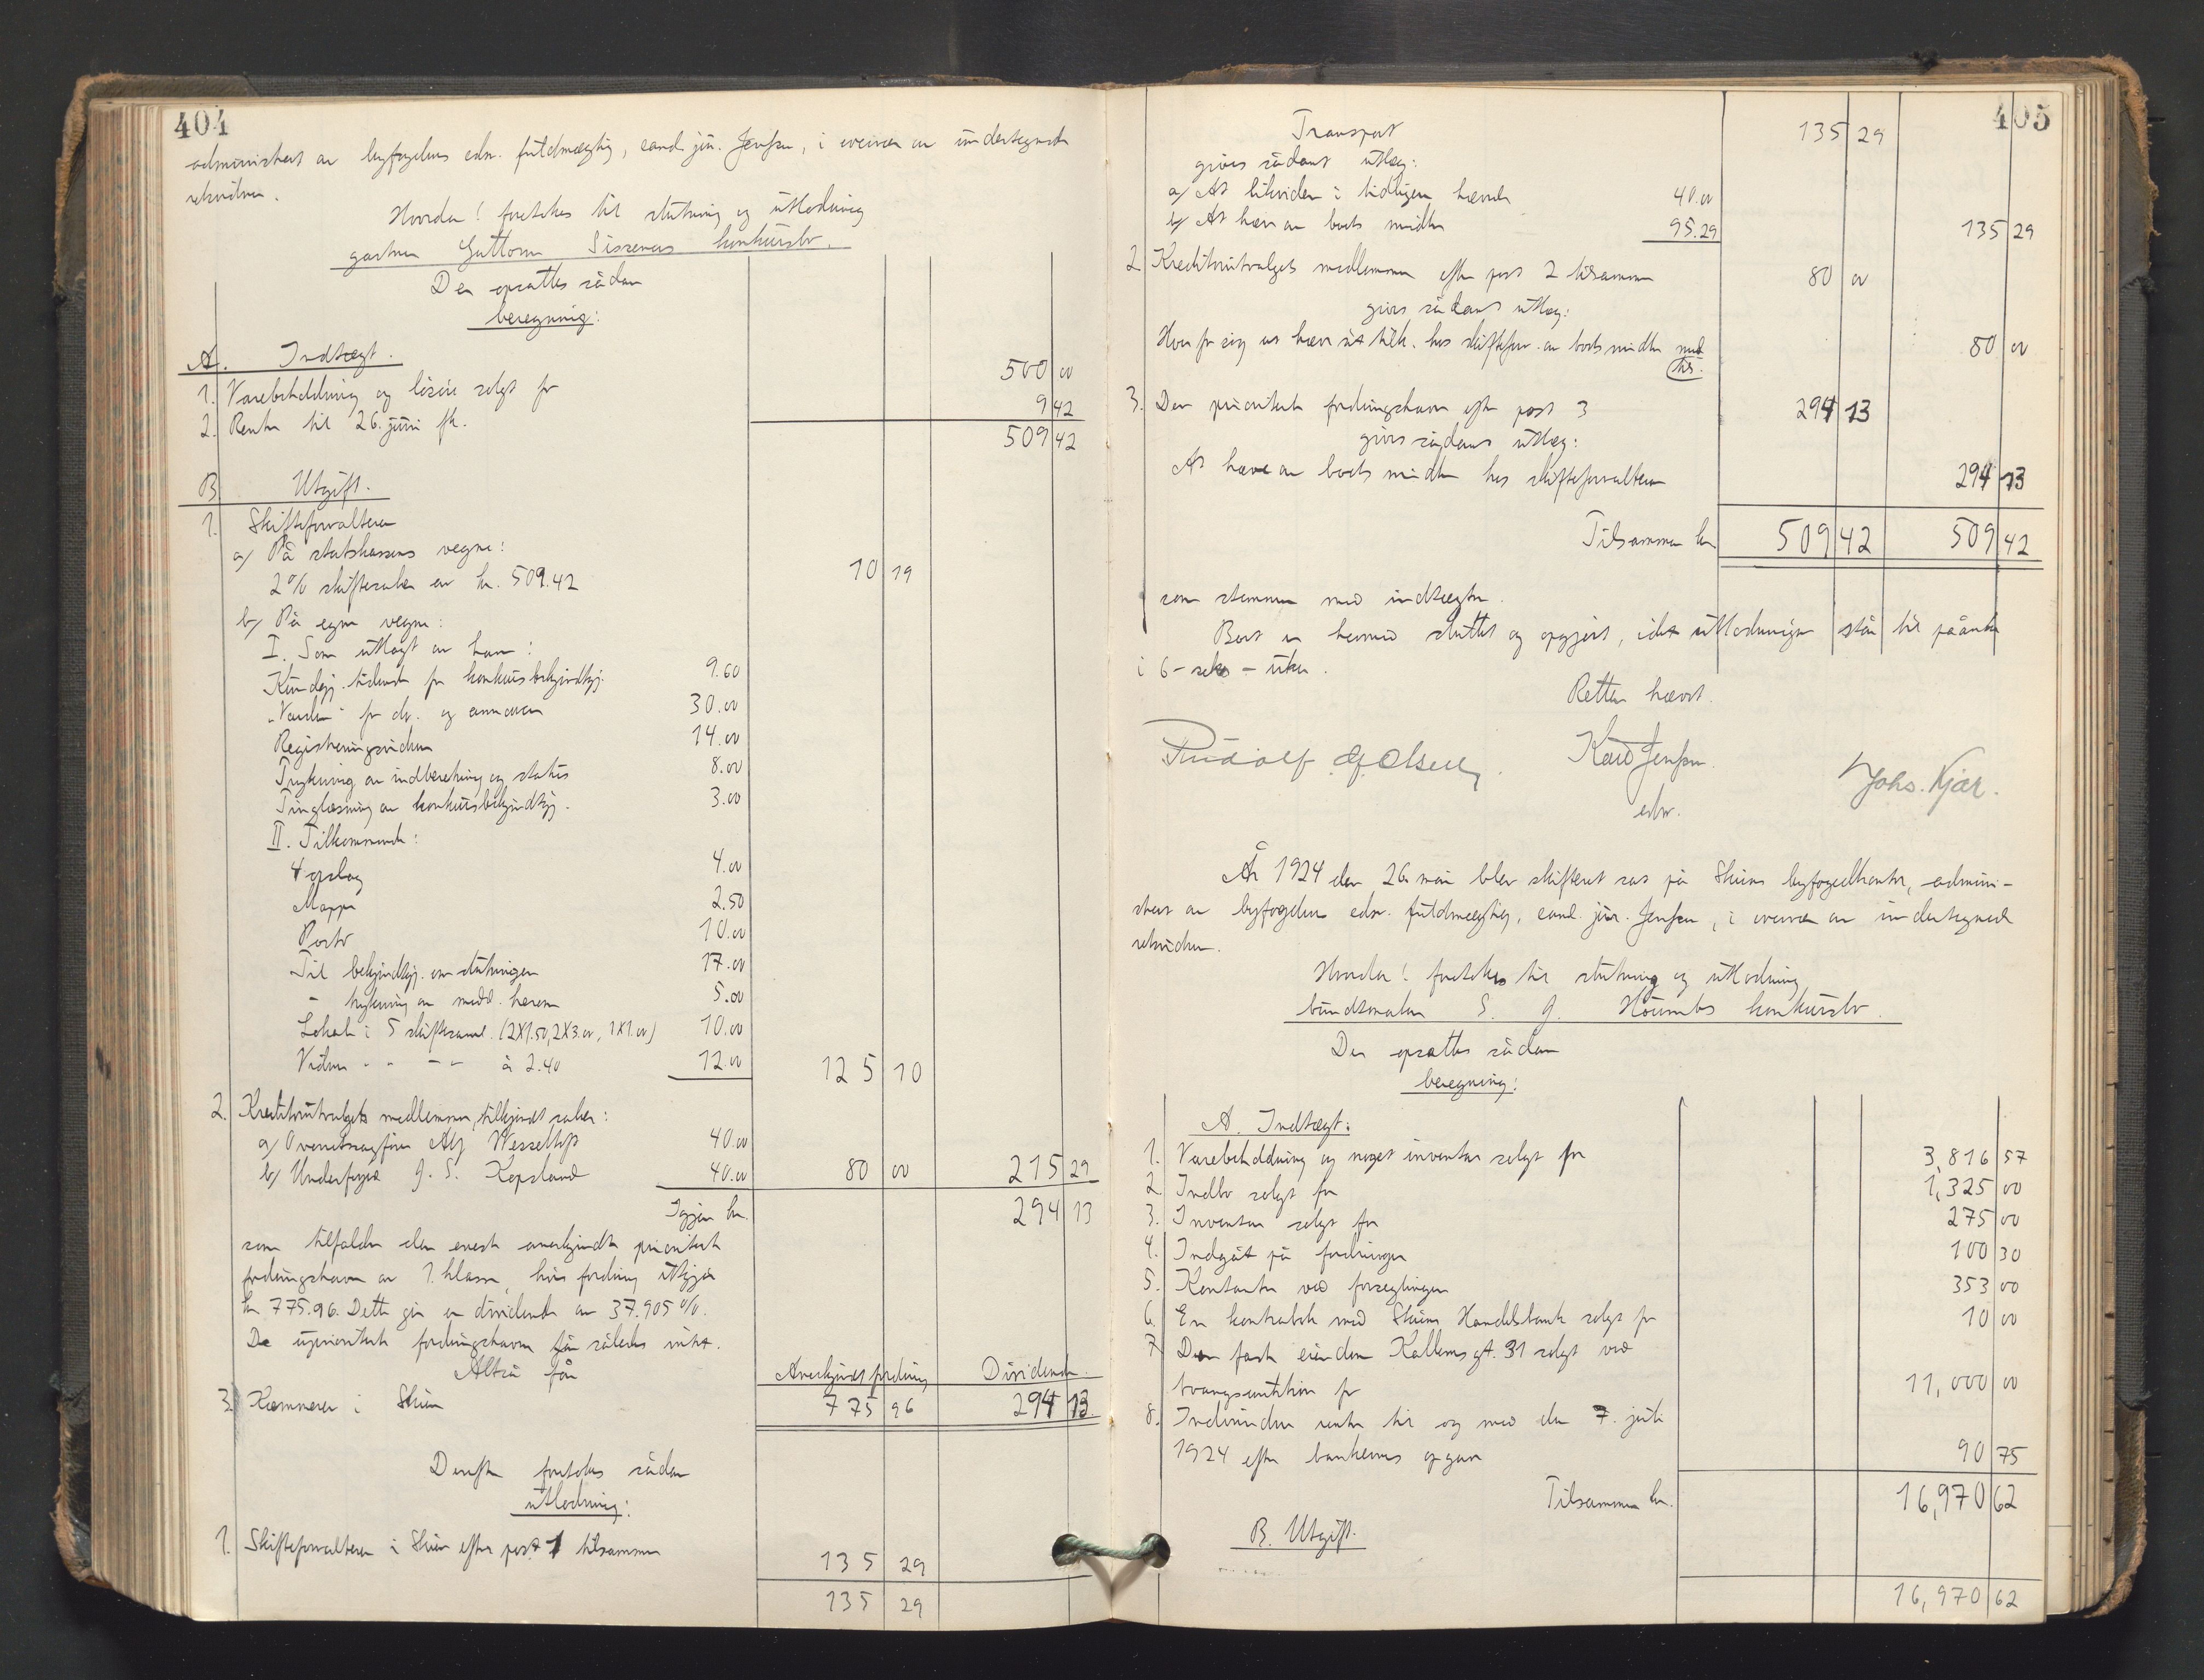 404
administrert av byfogdens edsv. fuldmægtig, cand. jur. Jensen, i overvær av undertegnede
retsvidner.
Hvorda! foretokes til slutning og utlodning
gartner Guttorm Sissenars konkursbo.
Der opsattes sådan
beregning:
A. Indtægt.
1. Varebeholdning og løsøre solgt for 500 00
2. Renter til 26. juni ft. 9 42
509 42
B Utgift.
1. Skifteforvalteren
a) På statskassens vegne:
2% skiftesalær av kr. 509.42 10 19
b) På egne vegne:
I. Som utlagt av ham:
Kundgj. tidende for konkursbekjendtgj. 9.60
"Varden" for do. og annonce 30.00
Registreringsvidner 14.00
Trykning av indberetning og status 8.00
Tinglæsning av konkursbekjendtgj. 3.00
II. Tilkommende:
4 opslag 4.00
Mappe 2.50
Porto 10.00
Til bekjendtgj. om slutningen 17.00
- trykning av medd. herom 5.00
Lokale i 5 skiftesaml. (2X1.50, 2X3.00, 1X1.00) 10.00
Vidner - - - - à 2.40 12.00 125 10
2. Kreditorutvalgets medlemmer, tilkjendt salær:
a) Overretssagfører Alf Wesseltoft 40.00
b) Underfoged J. S. Kopsland 40.00 80 00 215 29
Igjen kr. 294 13
som tilfalder den eneste anerkjendte prioriterte
fordringshaver av 1. klasse, hvis fordring utgjør
kr. 775.96. Dette gir en dividende av 37.905 %.
De uprioriterte fordringshavere får således intet.
Altså får Anerkjendt fordring Dividende.
3. Kæmneren i Skien 775 96 294 13.
Derefter foretokes sådan
utlodning:
1. Skifteforvalteren i Skien efter post 1 tilsammen 135 29
135 29
405
Transport 135 29
givers sådant utlæg:
a) At likvidere i tidligere hævede 40.00
b) At hæve av boets midler 95.29 135 29
2 Kreditorutvalgets medlemmer efter post 2 tilsammen 80 00
givers sådant utlæg:
Hver for sig at hæve sit tilk. hos skifteforv. av boets midler med
tils. 80 00
3. Den prioriterte fordringshaver efter post 3 294 13
givers sådant utlæg:
At hæve av boets midler hos skifteforvalteren 294 13
Tilsammen kr. 509 42 509 42
som stemmer med indtægten.
Boet er hermed sluttet og opgjort, idet utlodningen står til påanke
i 6 - seks - uker.
Retten hævet.
Rudolf Gj. Olsen. Kåre Jensen. Johs. Kjær.
edsv.
År 1924 den 26. mai blev skifteret sat på Skiens byfogedkontor, admini-
strert av byfogdens edsv. fuldmægtig, cand. jur. Jensen, i overvær av undertegnede
retsvidner.
Hvorda! foretokes til slutning og utlodning
buntmaker S. J. Houmbs konkursbo.
Der opsattes sådan
beregning:
A. Indtægt:
1. Varebeholdning og noget inventar solgt for 3,816 57
2. Indbo solgt for 1,325 00
3. Inventar solgt for 275 00
4. Indgåt på fordringer 100 30
5. Kontanter ved forseglingen 353 00
6. En kontrabok med Skiens Handelsbank solgt for 10 00
7 Den faste eiendom Kallems gt. 31 solgt ved
tvangsauktion for 11,000 00
8. Indvundne renter til og med den 7. juli
1924 efter bankernes opgave 90 75
Tilsammen kr. 16,970 62
B. Utgift.
16,970 62